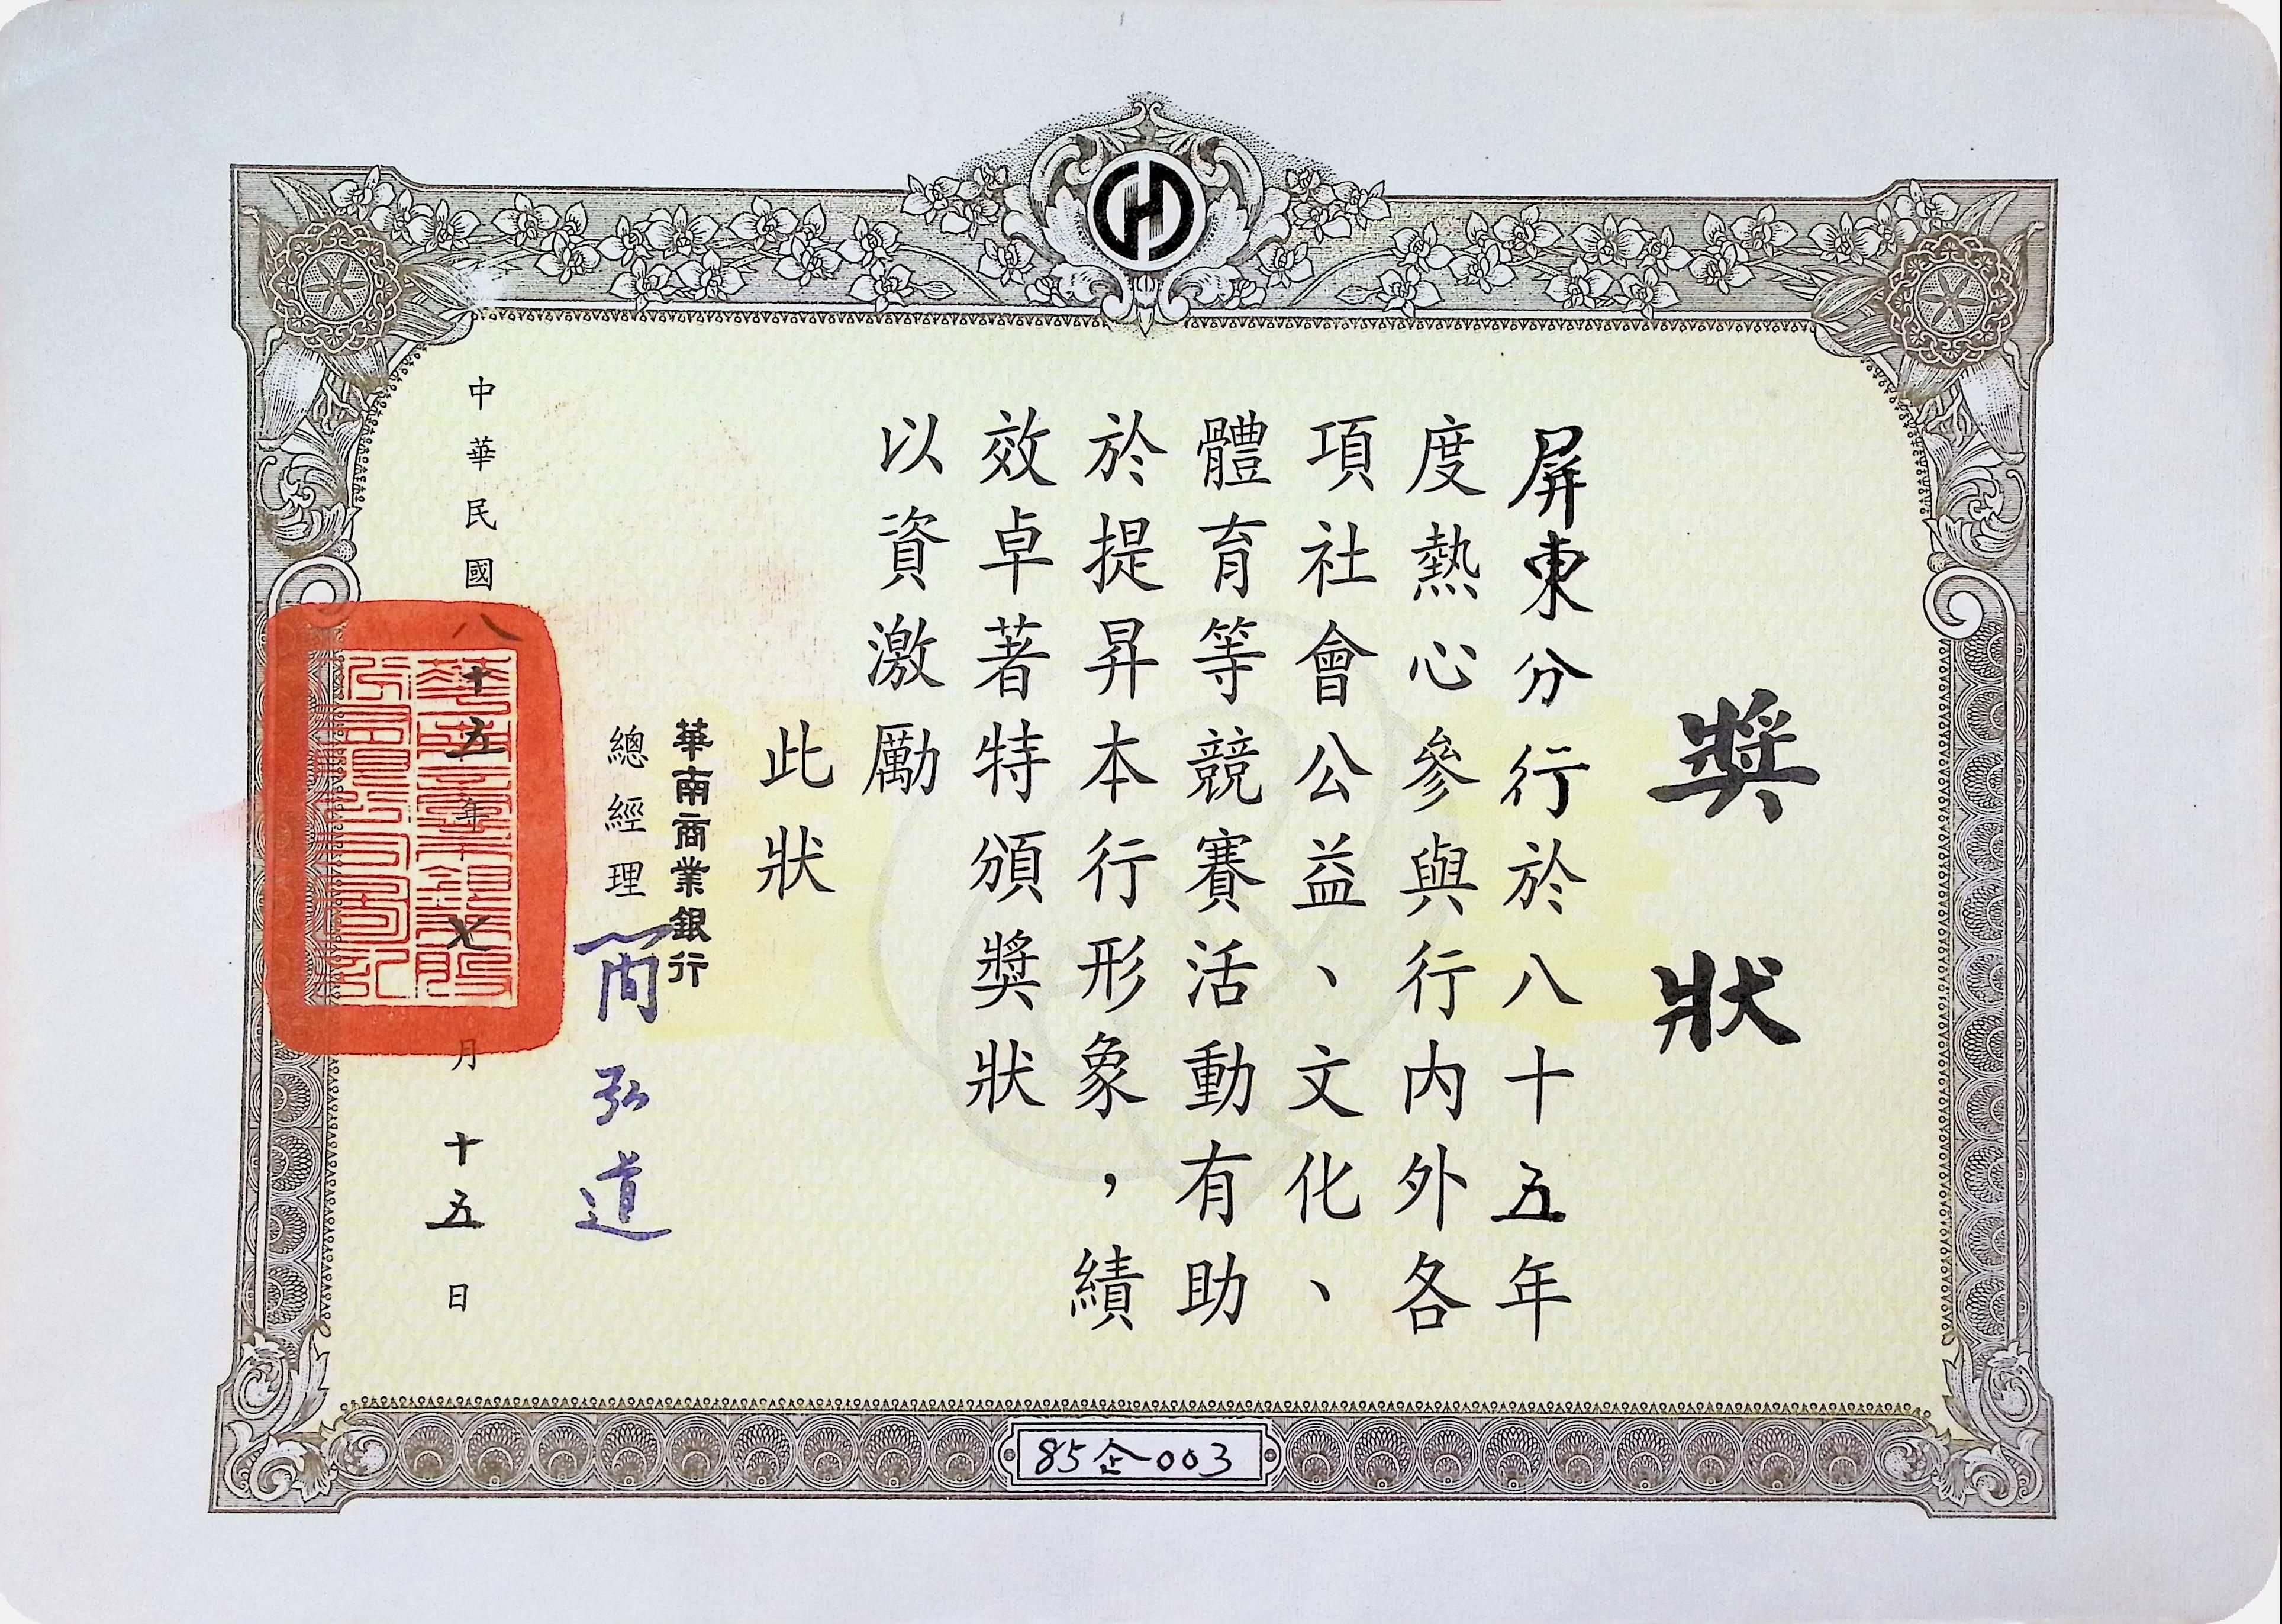 獎狀
屏東分行於八十五年
度熱心參與行內外各
項社會公益、文化、
體育等競賽活動有助
於提昇本行形象，績
效卓著特頒獎狀
以資激勵
此狀
華南商業銀行
總經理 簡弘道
中華民國八十五年七月十五日
85企003